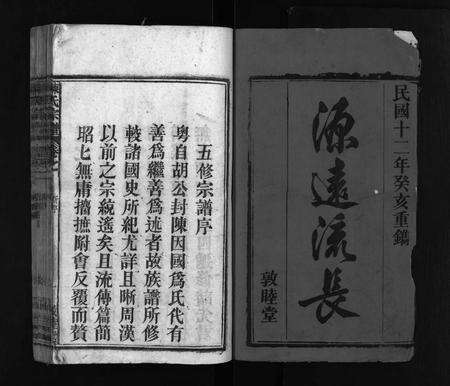 民國十二年癸亥重鐫
源遠流長
敦睦堂
五修宗譜序
粵自胡公封陳因國為氏代有
善為繼善為述者故族譜所修
較諸國史所紀尤詳且晰周漢
以前之宗統遙矣且流傳篇簡
昭上無庸擣摭附會反覆而贅